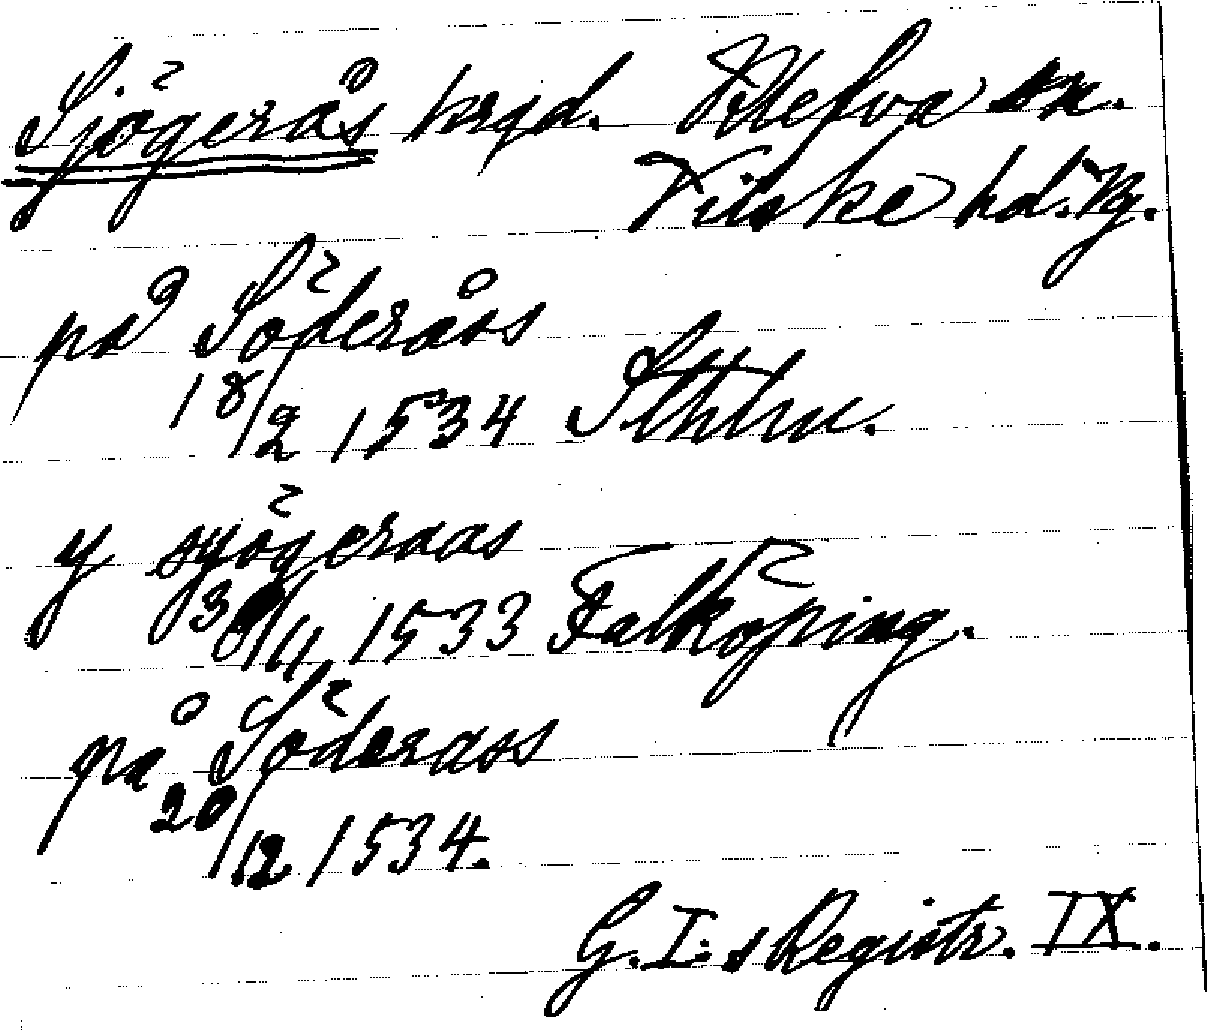 Sjögerås hrgd. Klefva sn.
Vilske hd. Vg.
på Söderåss
18/2 1534 Sthlm.
y syögeraas
30/11 1533 Falköping.
på Söderass
20/12 1534.
G. I:s Registr. IX.